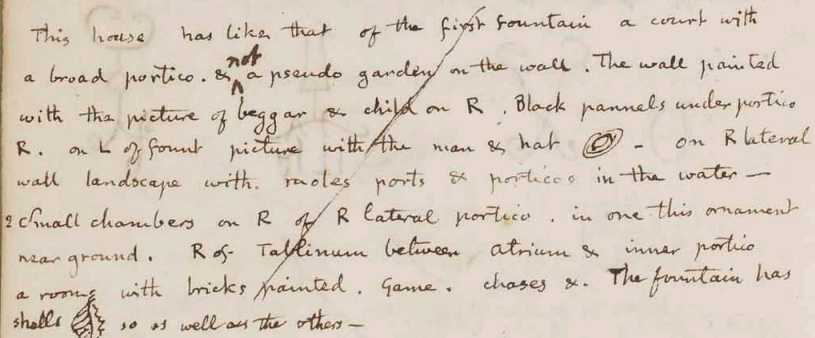 This house has like that of the first fountain a court with
a broad portico. & not a pseudo garden on the wall. The wall painted
with the picture of beggar & child on R. Black pannels under portico
R. on L of fount picture with the man & hat - on R lateral
wall landscape with. moles ports & porticos in the water —
2 small chambers on R of R lateral portico. in one this ornament
near ground. R of Tablinum between atrium & inner portico
a room with bricks painted. Game. chases &. The fountain has
shells so as well as the others —